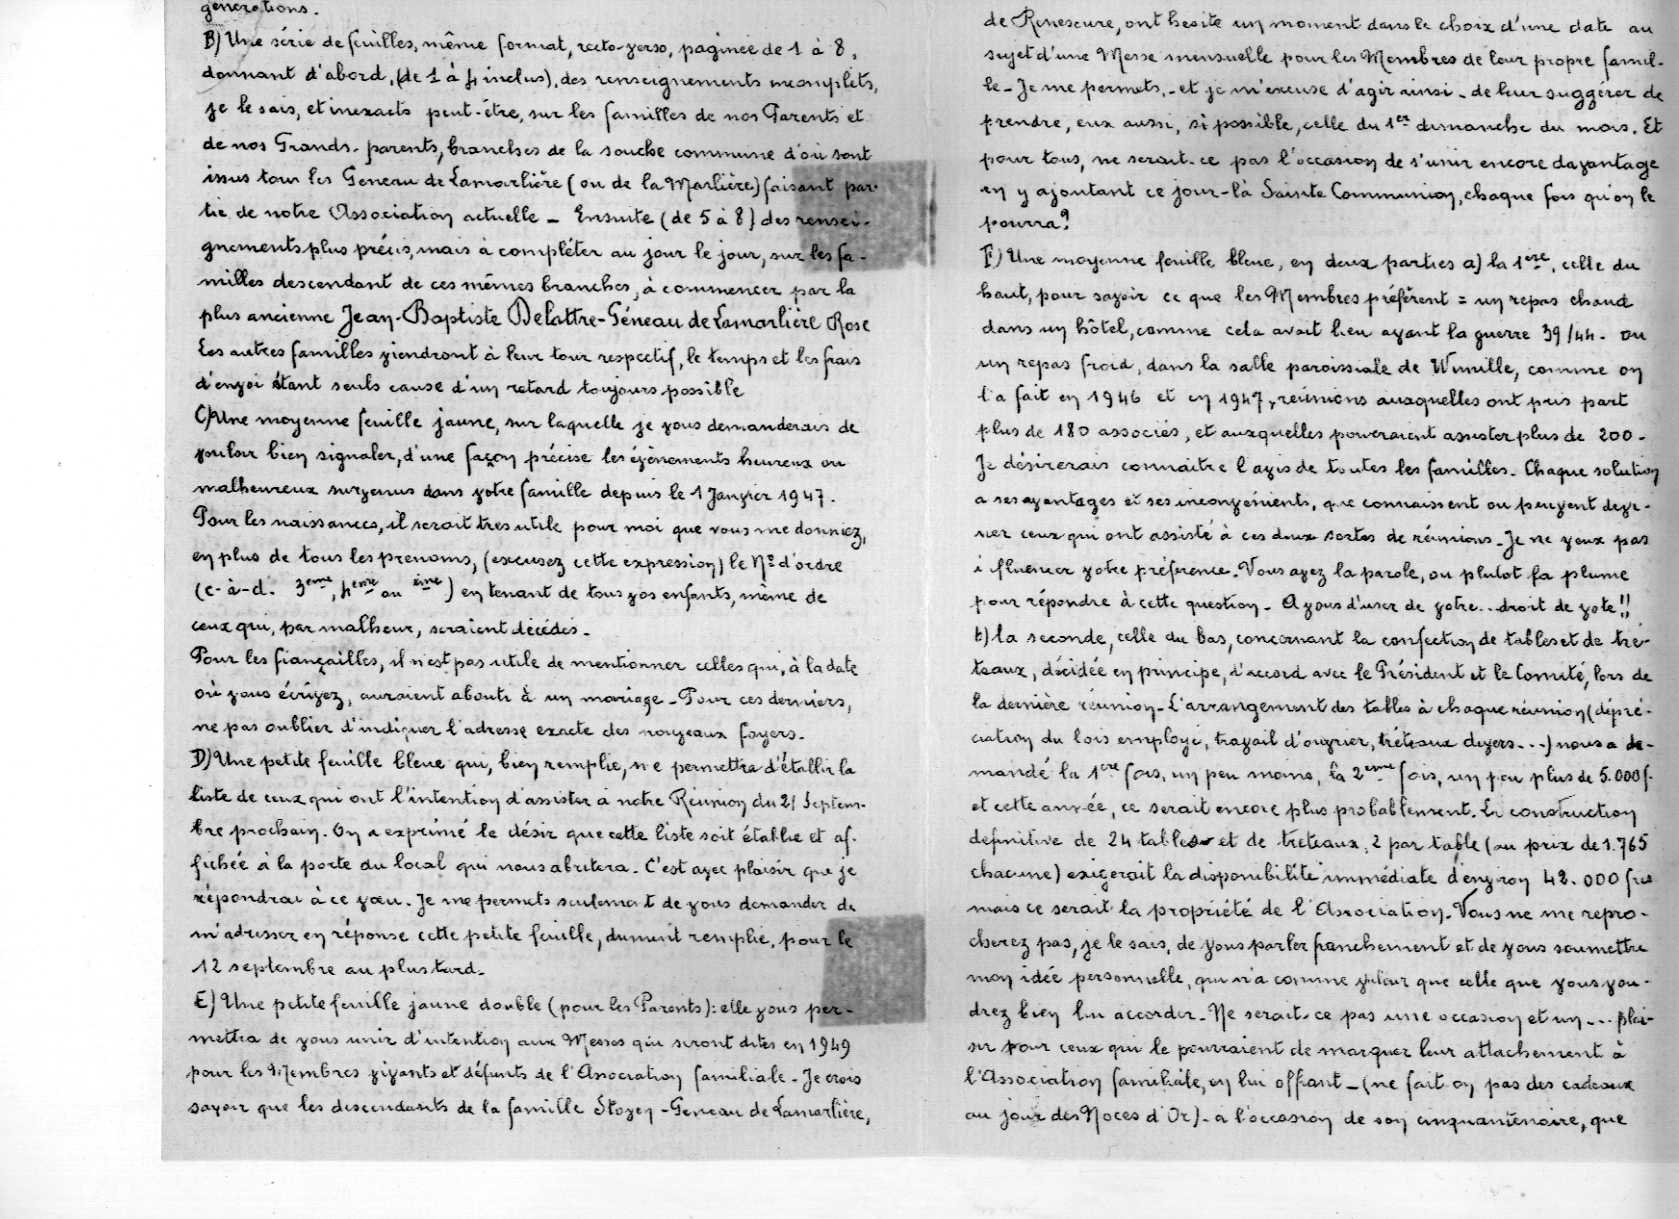 générations.
B) Une série de feuilles, même format, recto-verso, paginée de 1 à 8,
donnant d'abord, (de 1 à 4 inclus), des renseignements incomplets,
je le sais, et inexacts peut-être, sur les familles de nos Parents et
de nos Grands-parents, branches de la souche commune d'où sont
issus tous les Géneau de Lamarlière (ou de la Marlière) faisant par-
tie de notre Association actuelle - Ensuite (de 5 à 8) des rensei-
gnements plus précis, mais à compléter au jour le jour, sur les fa-
milles descendant de ces mêmes branches, à commencer par la
plus ancienne Jean-Baptiste Delattre-Géneau de Lamarlière Rose
Les autres familles viendront à leur tour respectif, le temps et les frais
d'envoi étant seuls cause d'un retard toujours possible
C) Une moyenne feuille jaune, sur laquelle je vous demanderais de
vouloir bien signaler, d'une façon précise les évènements heureux ou
malheureux survenus dans votre famille depuis le 1 Janvier 1947.
Pour les naissances, il serait très utile pour moi que vous me donniez,
en plus de tous les prénoms, (excusez cette expression) le No d'ordre
(c-à-d. 3eme, 4eme ou ème) en tenant de tous vos enfants, même de
ceux qui, par malheur, seraient décédés.
Pour les fiançailles, il n'est pas utile de mentionner celles qui, à la date
où vous écrivez, auraient abouti à un mariage - Pour ces derniers,
ne pas oublier d'indiquer l'adresse exacte des nouveaux foyers.
D) Une petite feuille bleue qui, bien remplie, me permettra d'établir la
liste de ceux qui ont l'intention d'assister à notre Réunion du 21 Septem-
bre prochain. On a exprimé le désir que cette liste soit établie et af-
fichée à la porte du local qui nous abritera. C'est avec plaisir que je
répondrai à ce vœu. Je me permets seulement de vous demander de
m'adresser en réponse cette petite feuille, dument remplie, pour le
12 septembre au plus tard.
E) Une petite feuille jaune double (pour les Parents): elle vous per-
mettra de vous unir d'intention aux Messes qui seront dites en 1949
pour les Membres vivants et défunts de l'Association familiale - Je crois
savoir que les descendants de la famille Stoven-Geneau de Lamarlière,
de Renescure, ont hésité un moment dans le choix d'une date au
sujet d'une Messe mensuelle pour les Membres de leur propre famil-
le - Je me permets, - et je m'excuse d'agir ainsi - de leur suggérer de
prendre, eux aussi, si possible, celle du 1er dimanche du mois. Et
pour tous, ne serait-ce pas l'occasion de s'unir encore davantage
en y ajoutant ce jour-là Sainte Communion, chaque fois qu'on le
pourra?
F) Une moyenne feuille bleue, en deux parties a) la 1ère, celle du
haut, pour savoir ce que les Membres préfèrent = un repas chaud
dans un hôtel, comme cela avait lieu avant la guerre 39/44. ou
un repas froid, dans la salle paroissiale de Wimille, comme on
l'a fait en 1946 et en 1947, réunions auxquelles ont pris part
plus de 180 associés, et auxquelles pourraient assister plus de 200 -
Je désirerais connaître l'avis de toutes les familles. Chaque solution
a ses avantages et ses inconvénients, que connaissent ou peuvent devi-
ner ceux qui ont assisté à ces deux sortes de réunions - Je ne veux pas
i fluencer votre préférence. Vous avez la parole, ou plutot la plume
pour répondre à cette question - A vous d'user de votre.. droit de vote!!
b) la seconde, celle du bas, concernant la confection de tables et de tré-
teaux, décidée en principe, d'accord avec le Président et le Comité, lors de
la dernière réunion - L'arrangement des tables à chaque réunion (dépré-
ciation du bois employé, travail d'ouvrier, tréteaux divers...) nous a de-
mandé la 1ère fois, un peu moins, la 2eme fois, un peu plus de 5.000 f.
et cette année, ce serait encore plus probablement. La construction
définitive de 24 tables et de tréteaux, 2 par table (au prix de 1.765
chacune) exigerait la disponibilité immédiate d'environ 42.000 frs
mais ce serait la propriété de l'Association. Vous ne me repro-
cherez pas, je le sais, de vous parler franchement et de vous soumettre
mon idée personnelle, qui n'a comme valeur que celle que vous vou-
drez bien lui accorder. Ne serait-ce pas une occasion et un... plai-
sir pour ceux qui le pourraient de marquer leur attachement à
l'Association familiale, en lui offrant - (ne fait on pas des cadeaux
au jour des Noces d'Or) - à l'occasion de son cinquantenaire, que